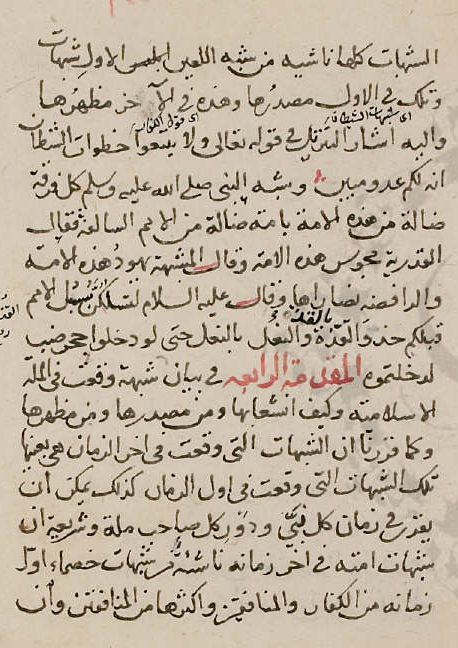 الشبهات كلها ناشيه من شبه اللعين الاول شبهات
وتلك في الاول مصدرها وهذه في الآخر مظهرها
اى شبهات الشيطان
اى قوله تعالى
واليه اشار التنزيل في قوله تعالى ولا يتبعوا خطوات الشيطان
انه لكم عدو مبين وشبه النبى صلى الله عليه وسلم كل فرقة
ضالة من هذه الامة بامة ضالة من الامم السالفة فقال
القدرية مجوس هذه الامة وقال المشبهة يهود هذه الامة
والرافضه نصاراها وقال عليه السلام لتسلكن سبل الامم
قبلكم حذو القذة بالقذة والنعل بالنعل حتى لو دخلوا جحر ضب
لدخلتموه المقدمة الرابعه في بيان شبهة وقعت في الملة
الاسلامية وكيف انشعابها ومن مصدرها ومن مظهرها
وكما قررنا ان الشبهات التى وقعت فى اخر الزمان هى بعينها
تلك الشبهات التى وقعت فى اول الزمان كذلك يمكن أن
يقرر في زمان كل نبى ودور كل صاحب ملة وشريعة ان
شبهات امته فى آخر زمانه ناشئة من شبهات خصماء اول
زمانه من الكفار والمنافقين واكثرها من المنافقين وان